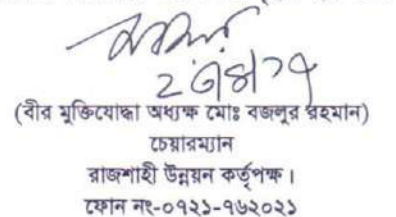 (বীর মুক্তিযোদ্ধা অধ্যক্ষ মোঃ বজলুর রহমান)
চেয়ারম্যান
রাজশাহী উন্নয়ন কর্তৃপক্ষ।
ফোন নং-০৭২১-৭৬২০২১